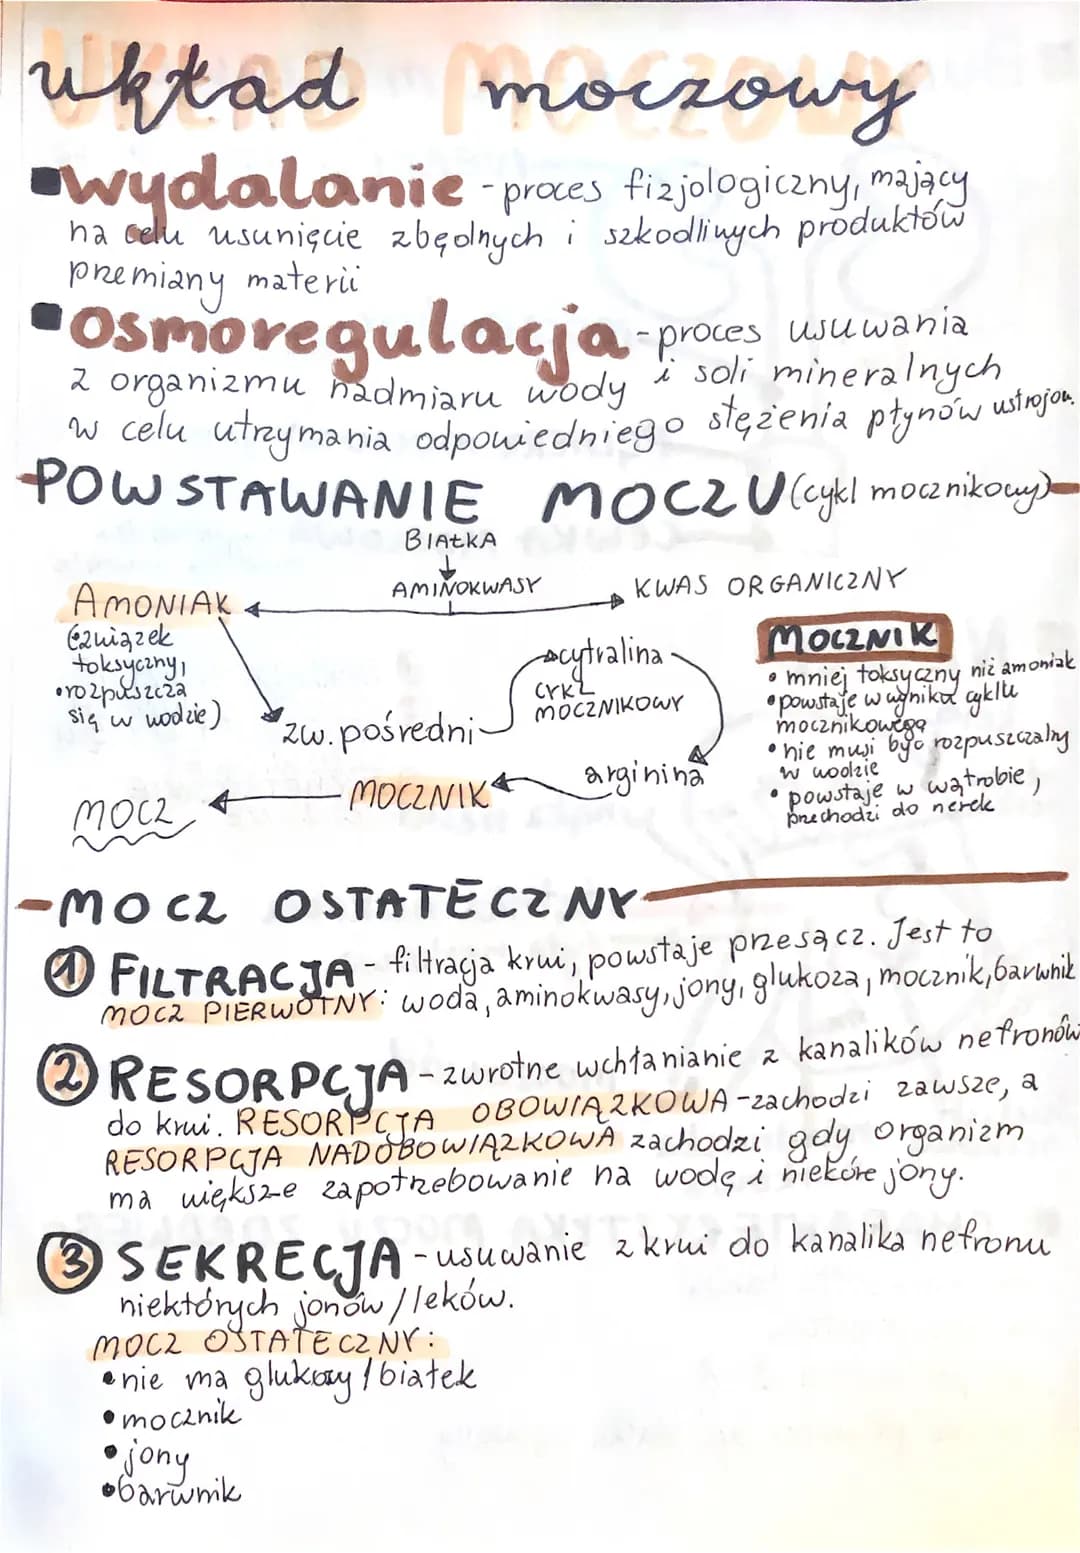 układ moczowy
▪wydalanie - proces fizjologiczny, mający
na celu usunięcie zbędnych i szkodliwych produktów
przemiany materii
▪osmoregulacja - proces usuwania
z organizmu nadmiaru wody i soli mineralnych
w celu utrzymania odpowiedniego stężenia płynów ustrojow.
-POWSTAWANIE MOCZU (cykl mocznikowy)-
BIAŁKA
AMINOKWASY
AMONIAK
KWAS ORGANICZNY
(związek
toksyczny,
•rozpuszcza
się w wodzie)
zw. pośredni
cytralina
CYKL
MOCZNIKOWY
arginina
MOCZNIK
MOCZ
MOCZNIK
• mniej toksyczny niż amoniak
• powstaje w wyniku cyklu
mocznikowego
• nie musi być rozpuszczalny
w wodzie
• powstaje w wątrobie,
przechodzi do nerek
-MOCZ OSTATECZNY-
① FILTRACJA - filtracja krwi, powstaje przesącz. Jest to
MOCZ PIERWOTNY: woda, aminokwasy, jony, glukoza, mocznik, barwnik
② RESORPCJA - zwrotne wchłanianie z kanalików nefronów
do krwi. RESORPCJA OBOWIĄZKOWA - zachodzi zawsze, a
RESORPCJA NADOBOWIĄZKOWA zachodzi gdy organizm
ma większe zapotrzebowanie na wodę i niekóre jony.
③ SEKRECJA - usuwanie z krwi do kanalika nefronu
niektórych jonów / leków.
MOCZ OSTATECZNY:
• nie ma glukozy / białek
• mocznik
• jony
• barwnik